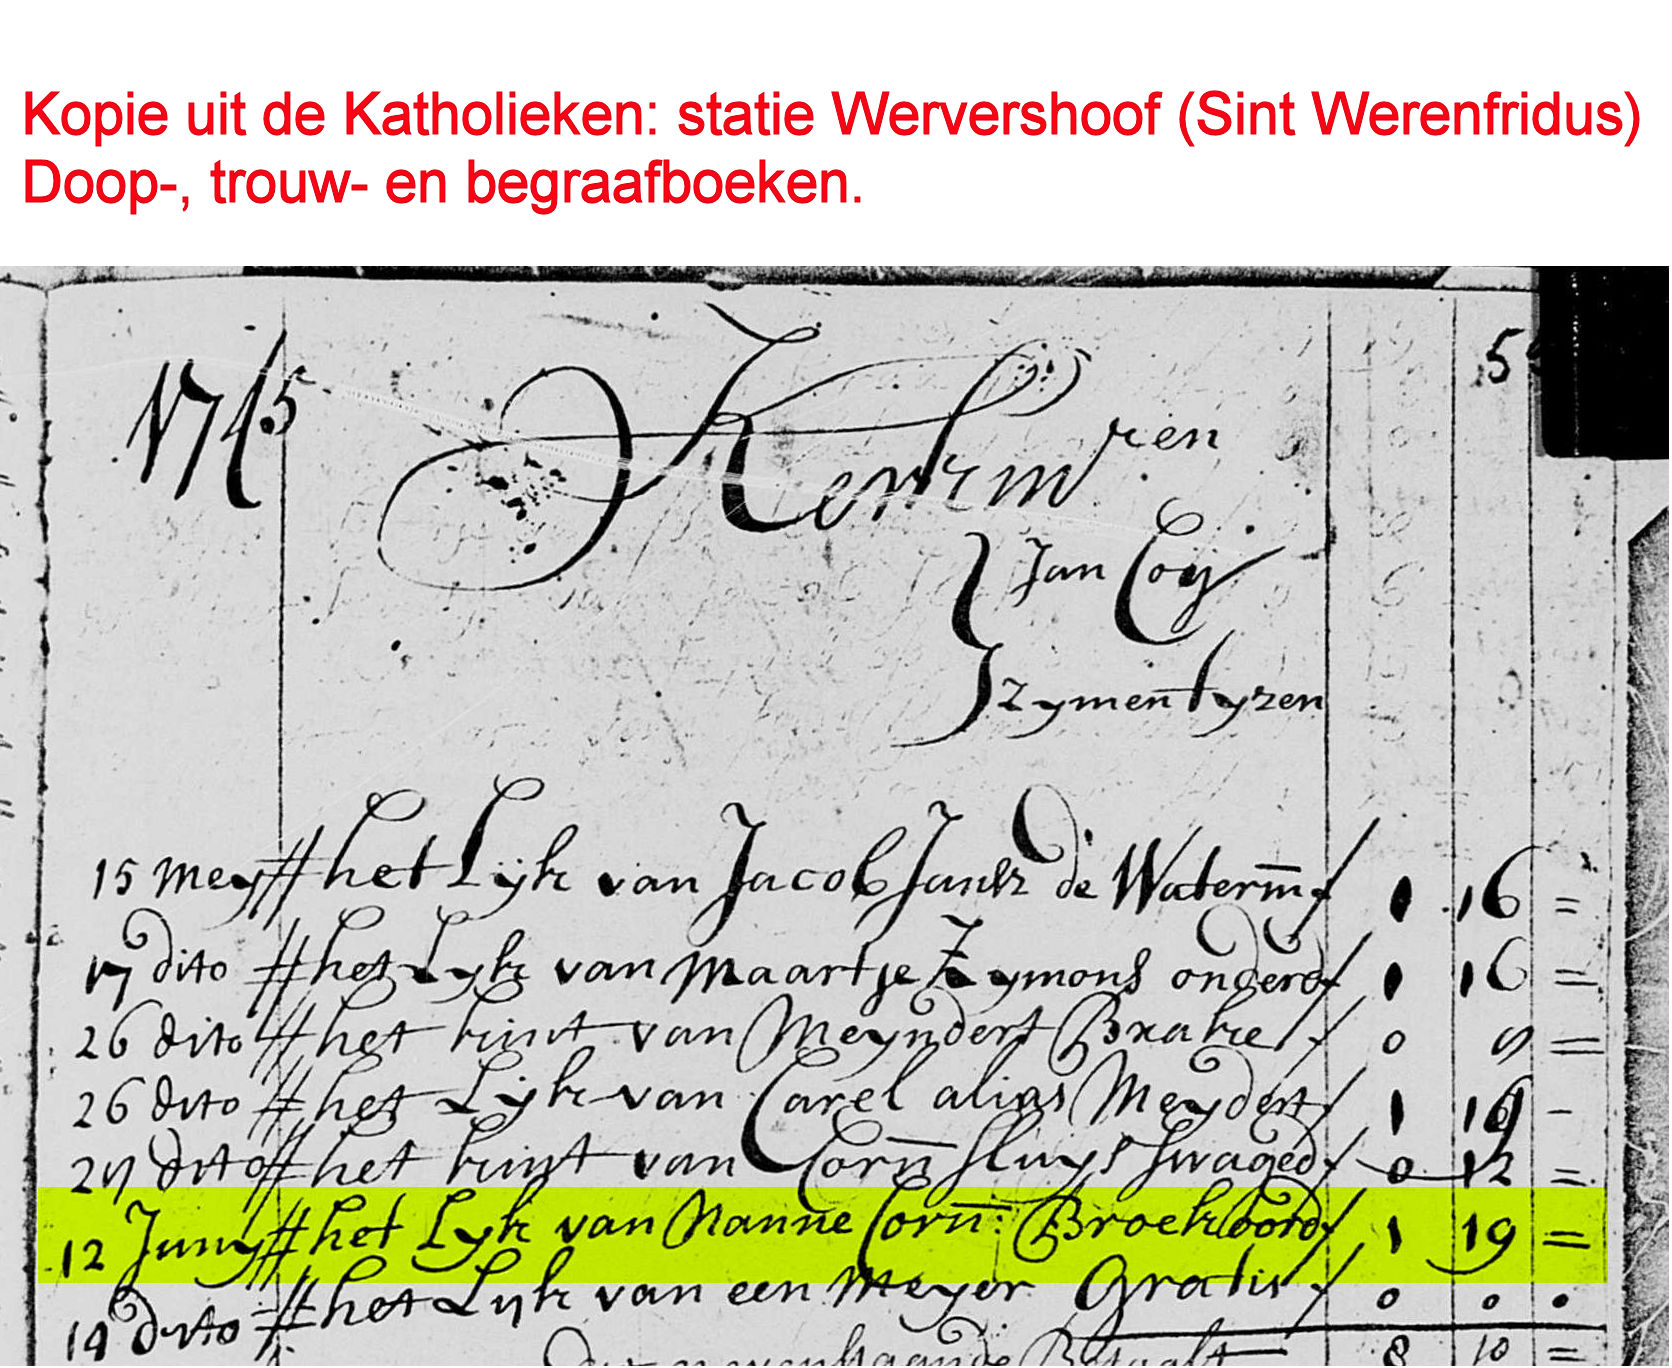 Kopie uit de Katholieken: statie Wervershoof (Sint Werenfridus)
Doop-, trouw- en begraafboeken.
5
1715
Kerkmren
Jan Coij
Zymentyzen
15 Mey het Lijk van Jacob Jansz de Waterm 1 16 =
17 dito het Lyk van Maartje Zymons onderd 1 16 =
26 dito het kint van Meyndert Brake 0 9 =
26 dito het Lyk van Carel alias Meydert 1 -
27 dito het kint van Corn Sluys Swaged 0 12 =
12 Juny het Lyk van Nanne Corn: Broekoord 1 19 =
19 dito het Lyk van een Meyer Gratis 0 0 0
Betaalt 8 10 =